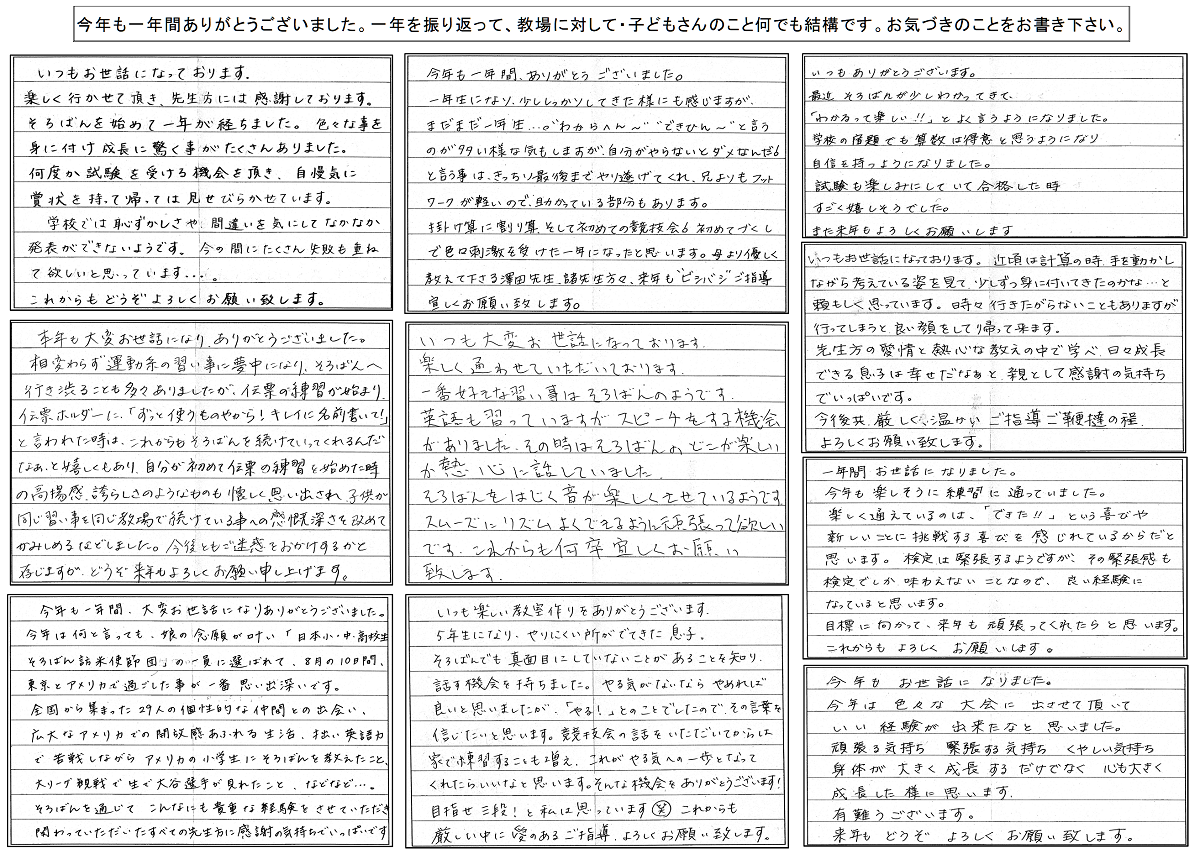 今年も一年間ありがとうございました。一年を振り返って、教場に対して・子どもさんのこと何でも結構です。お気づきのことをお書き下さい。
いつもお世話になっております。
楽しく行かせて頂き、先生方には感謝しております。
そろばんを始めて一年が経ちました。色々な事を
身に付け成長に驚く事がたくさんありました。
何度か試験を受ける機会を頂き、自慢気に
賞状を持って帰っては見せびらかせています。
学校では恥ずかしさや、間違いを気にしてなかなか
発表ができないようです。今の間にたくさん失敗も重ね
て欲しいと思っています...。
これからもどうぞよろしくお願い致します。
本年も大変お世話になり、ありがとうございました。
相変わらず運動系の習い事に夢中になり、そろばんへ
行き渋ることも多々ありましたが、伝票の練習が始まり、
伝票ホルダーに、「ずっと使うものやから!キレイに名前書いて!」
と言われた時は、これからもそろばんを続けていってくれるんだ
なぁ、と嬉しくもあり、自分が初めて伝票の練習を始めた時
の高揚感、誇らしさのようなものも懐しく思い出され、子供が
同じ習い事を同じ教場で続けている事への感慨深さを改めて
かみしめるなどしました。今後ともご迷惑をおかけするかと
存じますが、どうぞ来年もよろしくお願い申し上げます。
今年も一年間、大変お世話になりありがとうございました。
今年は何と言っても、娘の念願が叶い「日本小・中・高校生
そろばん訪米使節団」の一員に選ばれて、8月の10日間、
東京とアメリカで過ごした事が一番思い出深いです。
全国から集まった29人の個性的な仲間との出会い、
広大なアメリカでの開放感あふれる生活、拙い英語力
で苦戦しながらアメリカの小学生にそろばんを教えたこと、
大リーグ観戦で生で大谷選手が見れたこと、などなど...。
そろばんを通じてこんなにも貴重な経験をさせていただき
関わっていただいたすべての先生方に感謝の気持ちでいっぱいです
今年も一年間、ありがとうございました。
一年生になり、少ししっかりしてきた様にも感じますが、
まだまだ一年生...。"わからへん〜" "できひん〜"と言う
のが多い様な気もしますが、自分がやらないとダメなんだ
と言う事は、きっちり最後までやり遂げてくれ、兄よりもフット
ワークが軽いので、助かっている部分もあります。
掛け算に割り算、そして初めての競技会 初めてづくし
で色々刺激を受けた一年になったと思います。母より優しく
教えて下さる澤田先生、諸先生方々、来年も"ビシバシ"ご指導
宜しくお願い致します。
いつも大変お世話になっております。
楽しく通わせていただいております。
一番好きな習い事はそろばんのようです。
英語も習っていますがスピーチをする機会
がありました。その時はそろばんのどこが楽しい
か熱心に話していました。
そろばんをはじく音が楽しくさせているようです。
スムーズにリズムよくできるように頑張って欲しい
です。これからも何卒宜しくお願い
致します。
いつも楽しい教室作りをありがとうございます。
5年生になり、やりにくい所がでてきた息子。
そろばんでも真面目にしていないことがあることを知り、
話す機会を持ちました。やる気がないならやめれば
良いと思いましたが、「やる!」とのことでしたので、その言葉を
信じたいと思います。競技会の話をいただいてからは
家で練習することも増え、これがやる気への一歩となって
くれたらいいなと思います。そんな機会をありがとうございます!
目指せ三段!と私は思っています(笑) これからも
厳しい中に愛のあるご指導、よろしくお願い致します。
いつもありがとうございます。
最近そろばんが少しわかってきて、
「わかるって楽しい!!」とよく言うようになりました。
学校の宿題でも算数は得意と思うようになり
自信を持つようになりました。
試験も楽しみにしていて合格した時
すごく嬉しそうでした。
また来年もよろしくお願いします
いつもお世話になっております。近頃は計算の時、手を動かし
ながら考えている姿を見て、少しずつ身に付いてきたのかな...と
頼もしく思っています。時々行きたがらないこともありますが
行ってしまうと、良い顔をして帰って来ます。
先生方の愛情と熱心な教えの中で学べ、日々成長
できる息子は幸せだなぁと、親として感謝の気持ち
でいっぱいです。
今後共、厳しく温かいご指導ご鞭撻の程、
よろしくお願い致します。
一年間お世話になりました。
今年も楽しそうに練習に通っていました。
楽しく通えているのは、「できた!!」という喜びや
新しいことに挑戦する喜びを感じれているからだと
思います。検定は緊張するようですが、その緊張感も
検定でしか味わえないことなので、良い経験に
なっていると思います。
目標に向かって、来年も頑張ってくれたらと思います。
これからもよろしくお願いします。
今年もお世話になりました。
今年は色々な大会に出させて頂いて
いい経験が出来たなと思いました。
頑張る気持ち 緊張する気持ち くやしい気持ち
身体が大きく成長するだけでなく 心も大きく
成長した様に思います。
有難うございます。
来年もどうぞよろしくお願い致します。